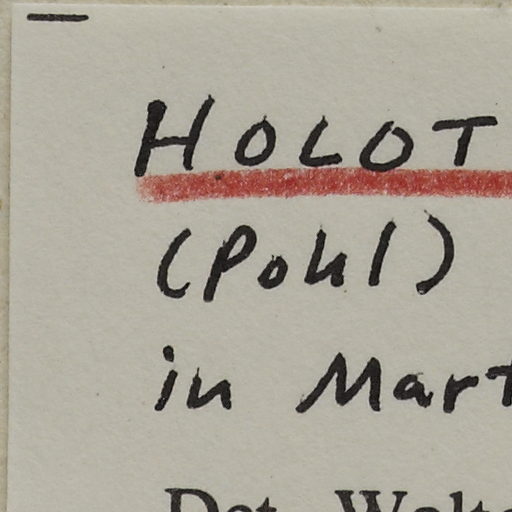 HOLOT
(Pohl)
in Mart
Det. Walte